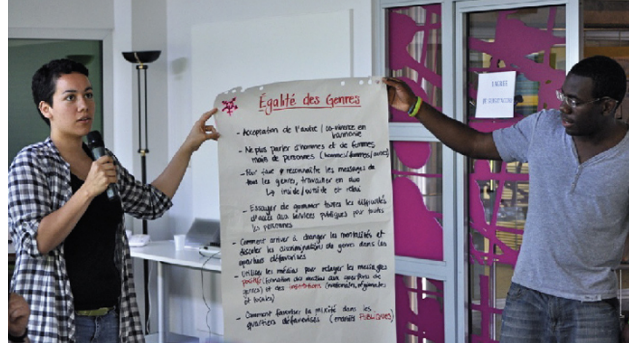 Egalité des Genres
- Acceptation de l'autre / co-vivre en
harmonie
- Ne plus parler d'hommes et de femmes
mais de personnes (hommes/femmes/autre)
- Pour faire reconnaître les messages de
tous les genres, travailler en duo
- Essayer de gommer toutes les difficultés
d'accès aux services publiques pour toutes
les personnes
- Comment arriver à changer les mentalités et
discuter les discriminations de genre dans les
quartiers défavorisés
- Utiliser les médias pour relayer les messages
positifs (formation des médias aux questions de
genres) et des institutions (nationales, régionales
et locales)
- Comment favoriser la mixité dans les
quartiers défavorisés (mairies PUBLIQUES)